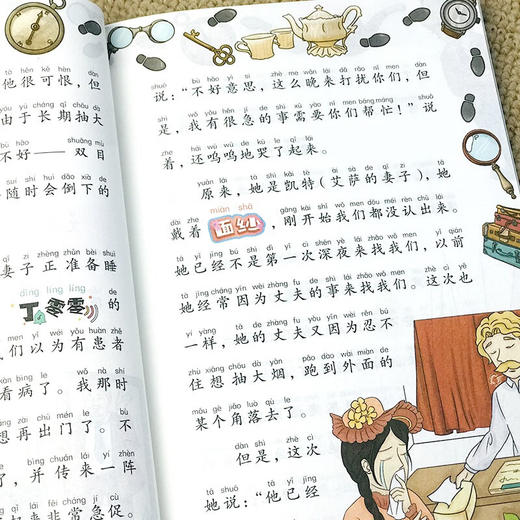 tā hěn kě hèn dàn
他很可恨，但
yóu yú cháng qī chōu dà
由于长期抽大
bù hǎo shuāng mù
不好——双目
suí shí huì dǎo xià de
随时会倒下的
qī zi zhèng zhǔn bèi shuì
妻子正准备睡
dīng líng líng de
丁零零 的
men yǐ wéi yǒu huàn zhě
们以为有患者
kàn bìng le wǒ nà shí
看病了。我那时
xiǎng zài chū mén le bù
想再出门了。不
bìng chuán lái yí zhèn
，并传来一阵
qǐ lái fēi cháng jí cù
起来非常急促。
shuō bù hǎo yì si zhè me wǎn lái dǎ rǎo nǐ men dàn
说：“不好意思，这么晚来打扰你们，但
shì wǒ yǒu hěn jí de shì xū yào nǐ men bāng máng shuō
是，我有很急的事需要你们帮忙！”说
zhe hái wū wū de kū le qǐ lái
着，还呜呜地哭了起来。
yuán lái tā shì kǎi tè ài sà de qī zi tā
原来，她是凯特（艾萨的妻子），她
dài zhe miàn shā gāng kāi shǐ wǒ men dōu méi rèn chū lái
戴着 面纱 ，刚开始我们都没认出来。
tā yǐ jīng bú shì dì yī cì shēn yè lái zhǎo wǒ men yǐ qián
她已经不是第一次深夜来找我们，以前
tā jīng cháng yīn wèi zhàng fu de shì lái zhǎo wǒ men zhè cì yě
她经常因为丈夫的事来找我们。这次也
yí yàng tā de zhàng fu yòu yīn wèi rěn bu
一样，她的丈夫又因为忍不
zhù xiǎng chōu dà yān pǎo dào wài miàn de
住想抽大烟，跑到外面的
mǒu gè jiǎo luò qù le
某个角落去了。
dàn shì zhè cì
但是，这次
tā shuō tā yǐ jīng
她说：“他已经